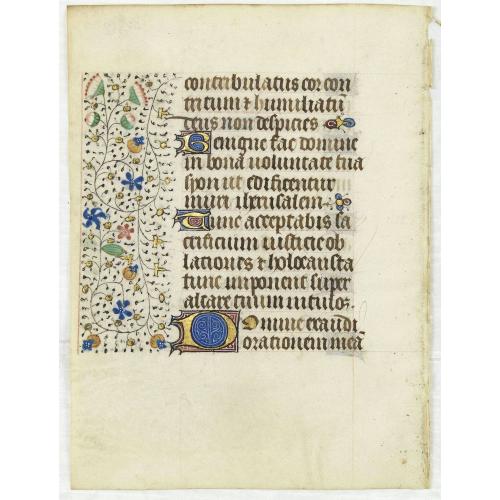 contribulatus cor con
tritum ⁊ humiliatū
deus non despicies
Benigne fac domine
in bona voluntate tua
syon ut edificentur
muri iherusalem
Tunc acceptabis sa
crificium iusticie ob
lationes ⁊ holocausta
tunc imponent super
altare tuum vitulos.
Domine exaudi
orationem meā